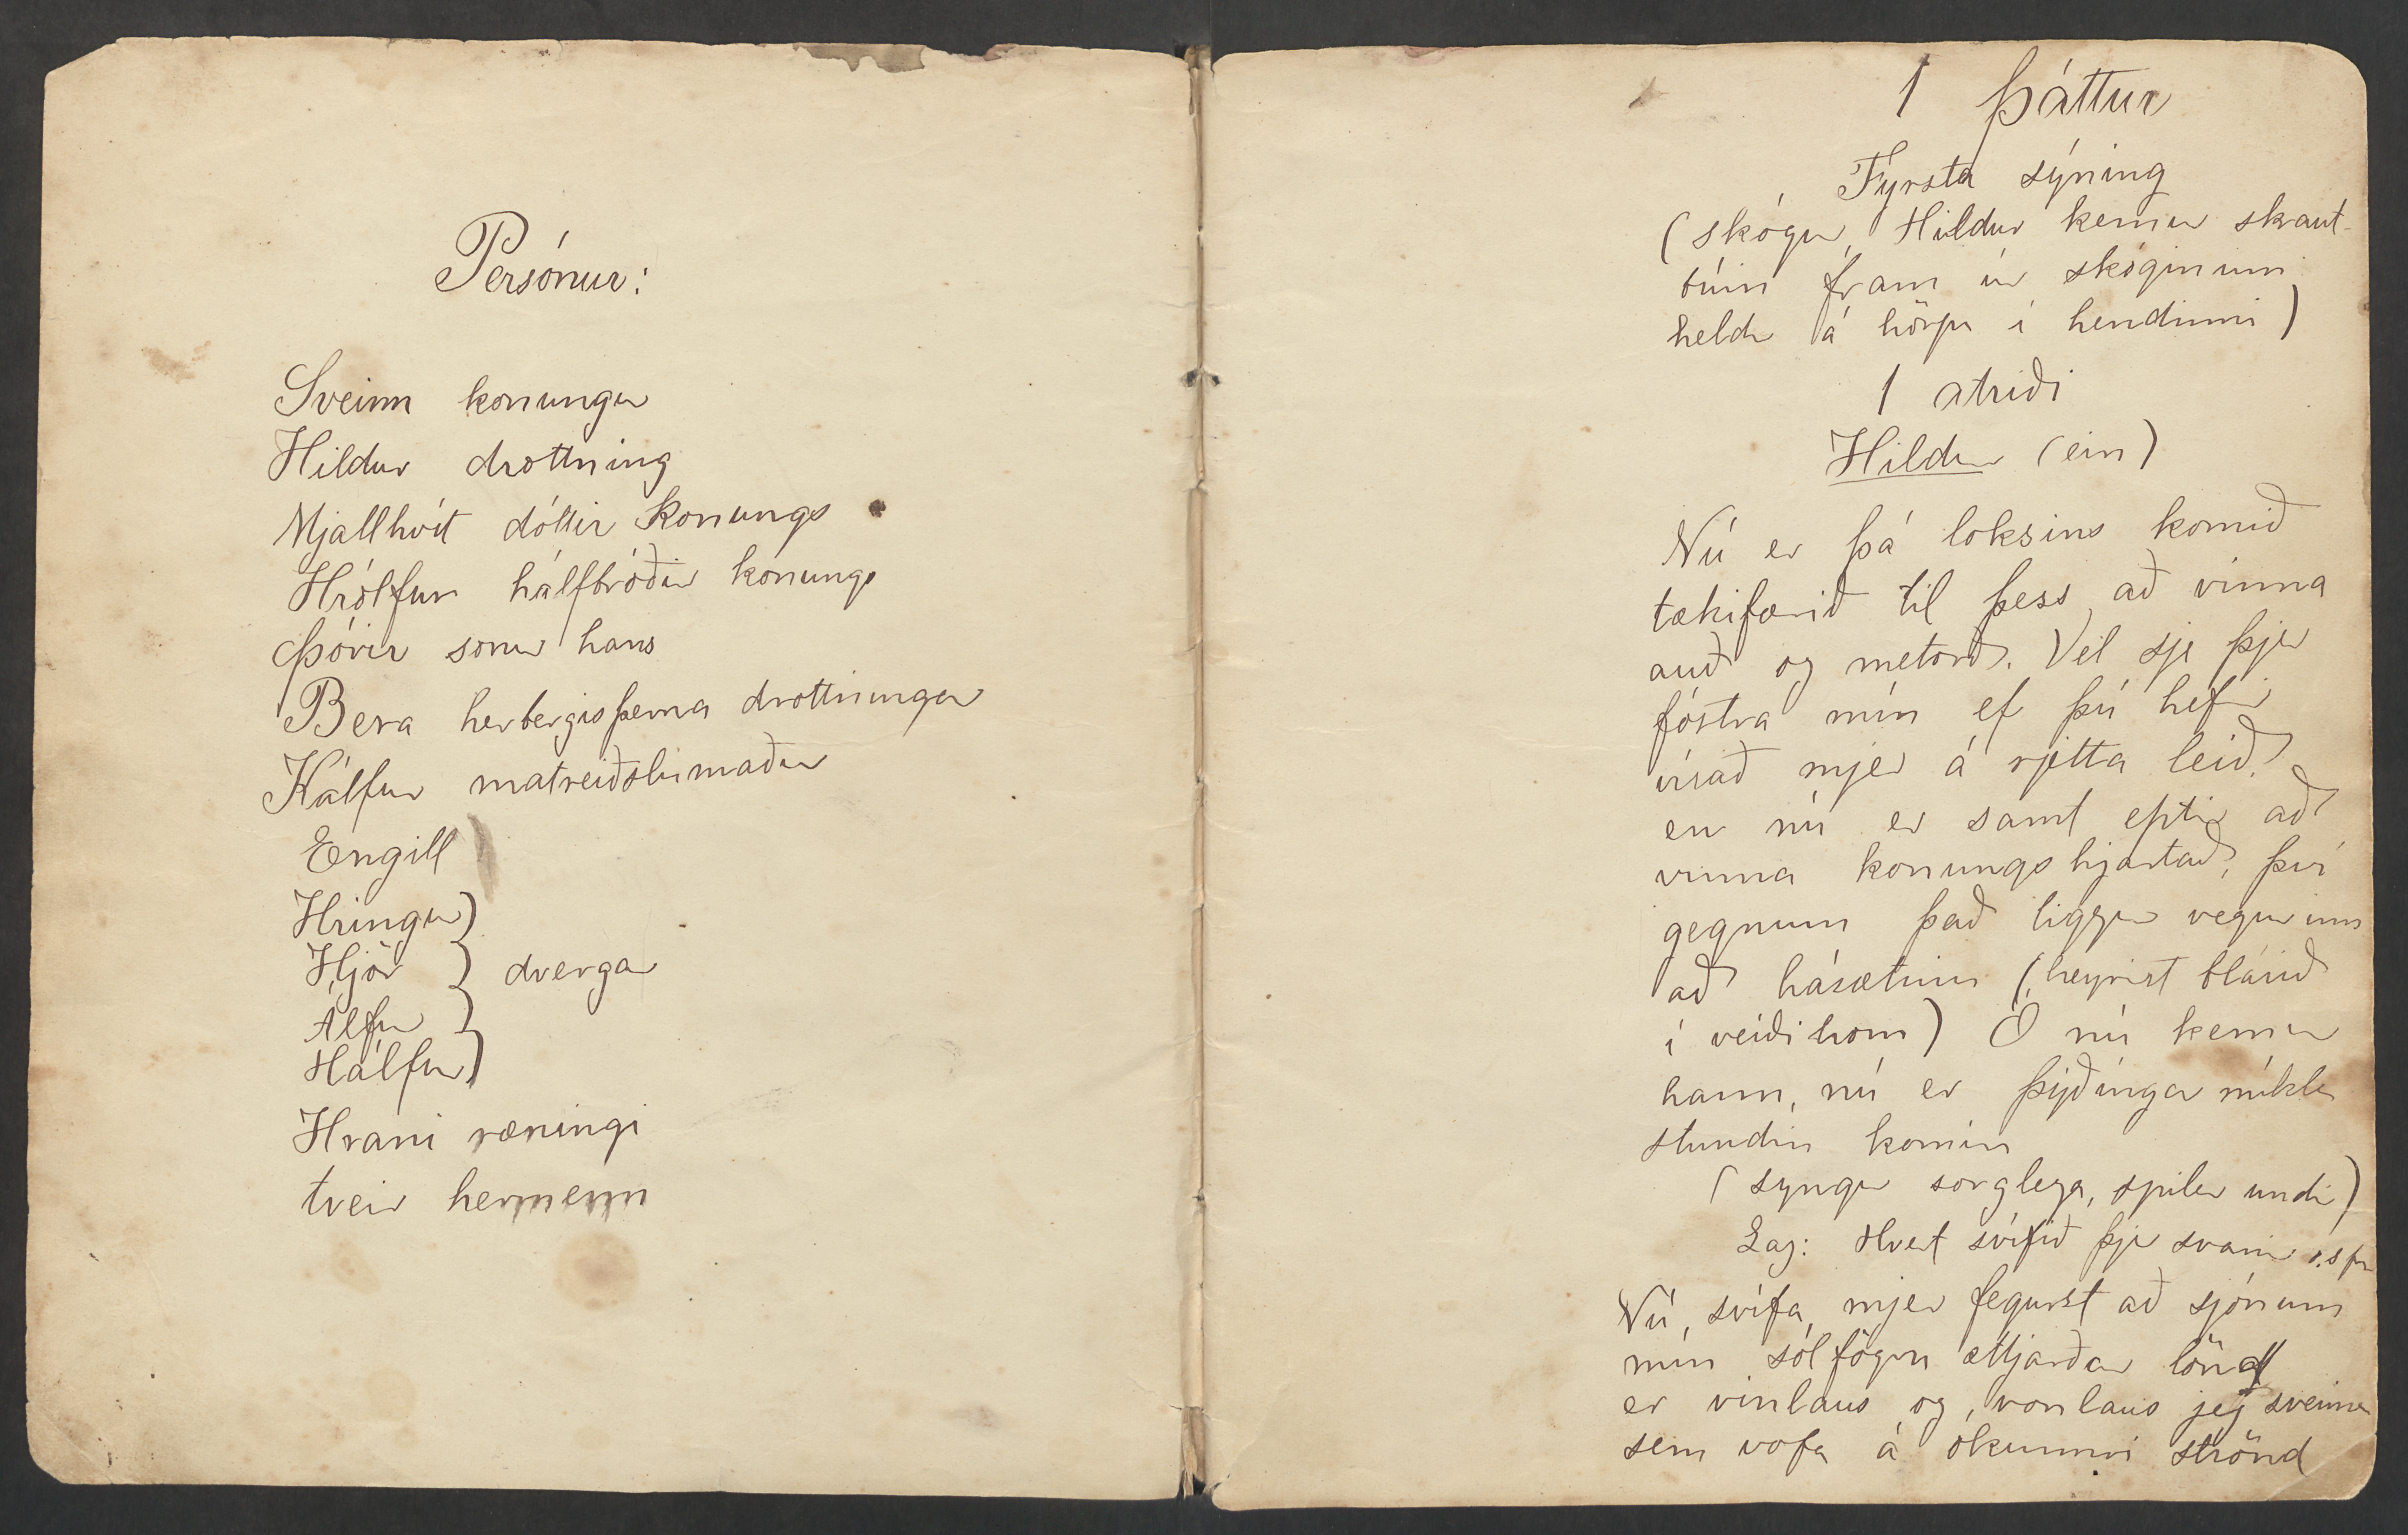 Persónur:
Sveinn konungur
Hildur drottning
Mjallhvít dóttir konungs
Hrólfur hálfbróðir konungs
Þórir sonur hans
Bera herbergisþerna drottningar
Kálfur matreiðslumaður
Engill
Hringur
Hjör } dvergar
Álfur
Hálfur
Hrani ræningi
tveir hermenn
1 Þáttur
Fyrsta sýning
(skógur, Hildur kemur skraut-
búin fram úr skóginum
heldr á hörpu í hendinni)
1 atriði
Hildur (ein)
Nú er þá loksins komið
tækifærið til þess að vinna
auð og metorð. Vel sje þjer
fóstra mín ef þú hefir
vísað mjer á rjetta leið.
en nú er samt eptir að
vinna konungshjartað, því
gegnum það liggur vegurinn
að hásætinu (heyrist blásið
í veiðihorn) Ó nú kemur
hann, nú er þýðingar mikla
stundin komin
(syngur sorglega, spilar undir)
Lag: Hvert svífið þjer svanir
Nú, svífa, mjer fegurst að sjónum
mín sólfögru ættjarðar lönd
er vinlaus og, vonlaus jeg sveima
sem vofa á ókunnri strönd